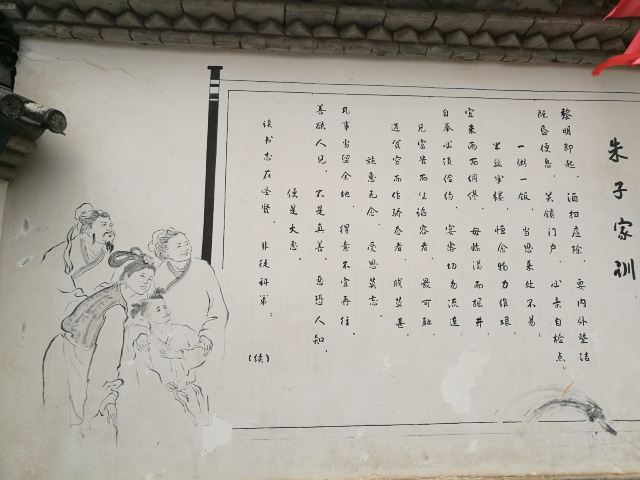 朱子家训
黎明即起，洒扫庭除，要内外整洁
既昏便息，关锁门户，必亲自检点。
一粥一饭，当思来处不易；
半丝半缕，恒念物力维艰。
宜未雨而绸缪，毋临渴而掘井。
自奉必须俭约，宴客切勿流连。
见富贵而生谄容者，最可耻
遇贫穷而作骄态者，贱莫甚。
施惠无念，受恩莫忘。
凡事当留余地，得意不宜再往。
善欲人见，不是真善，恶恐人知，
便是大恶。
读书志在圣贤，非徒科第；
（续）